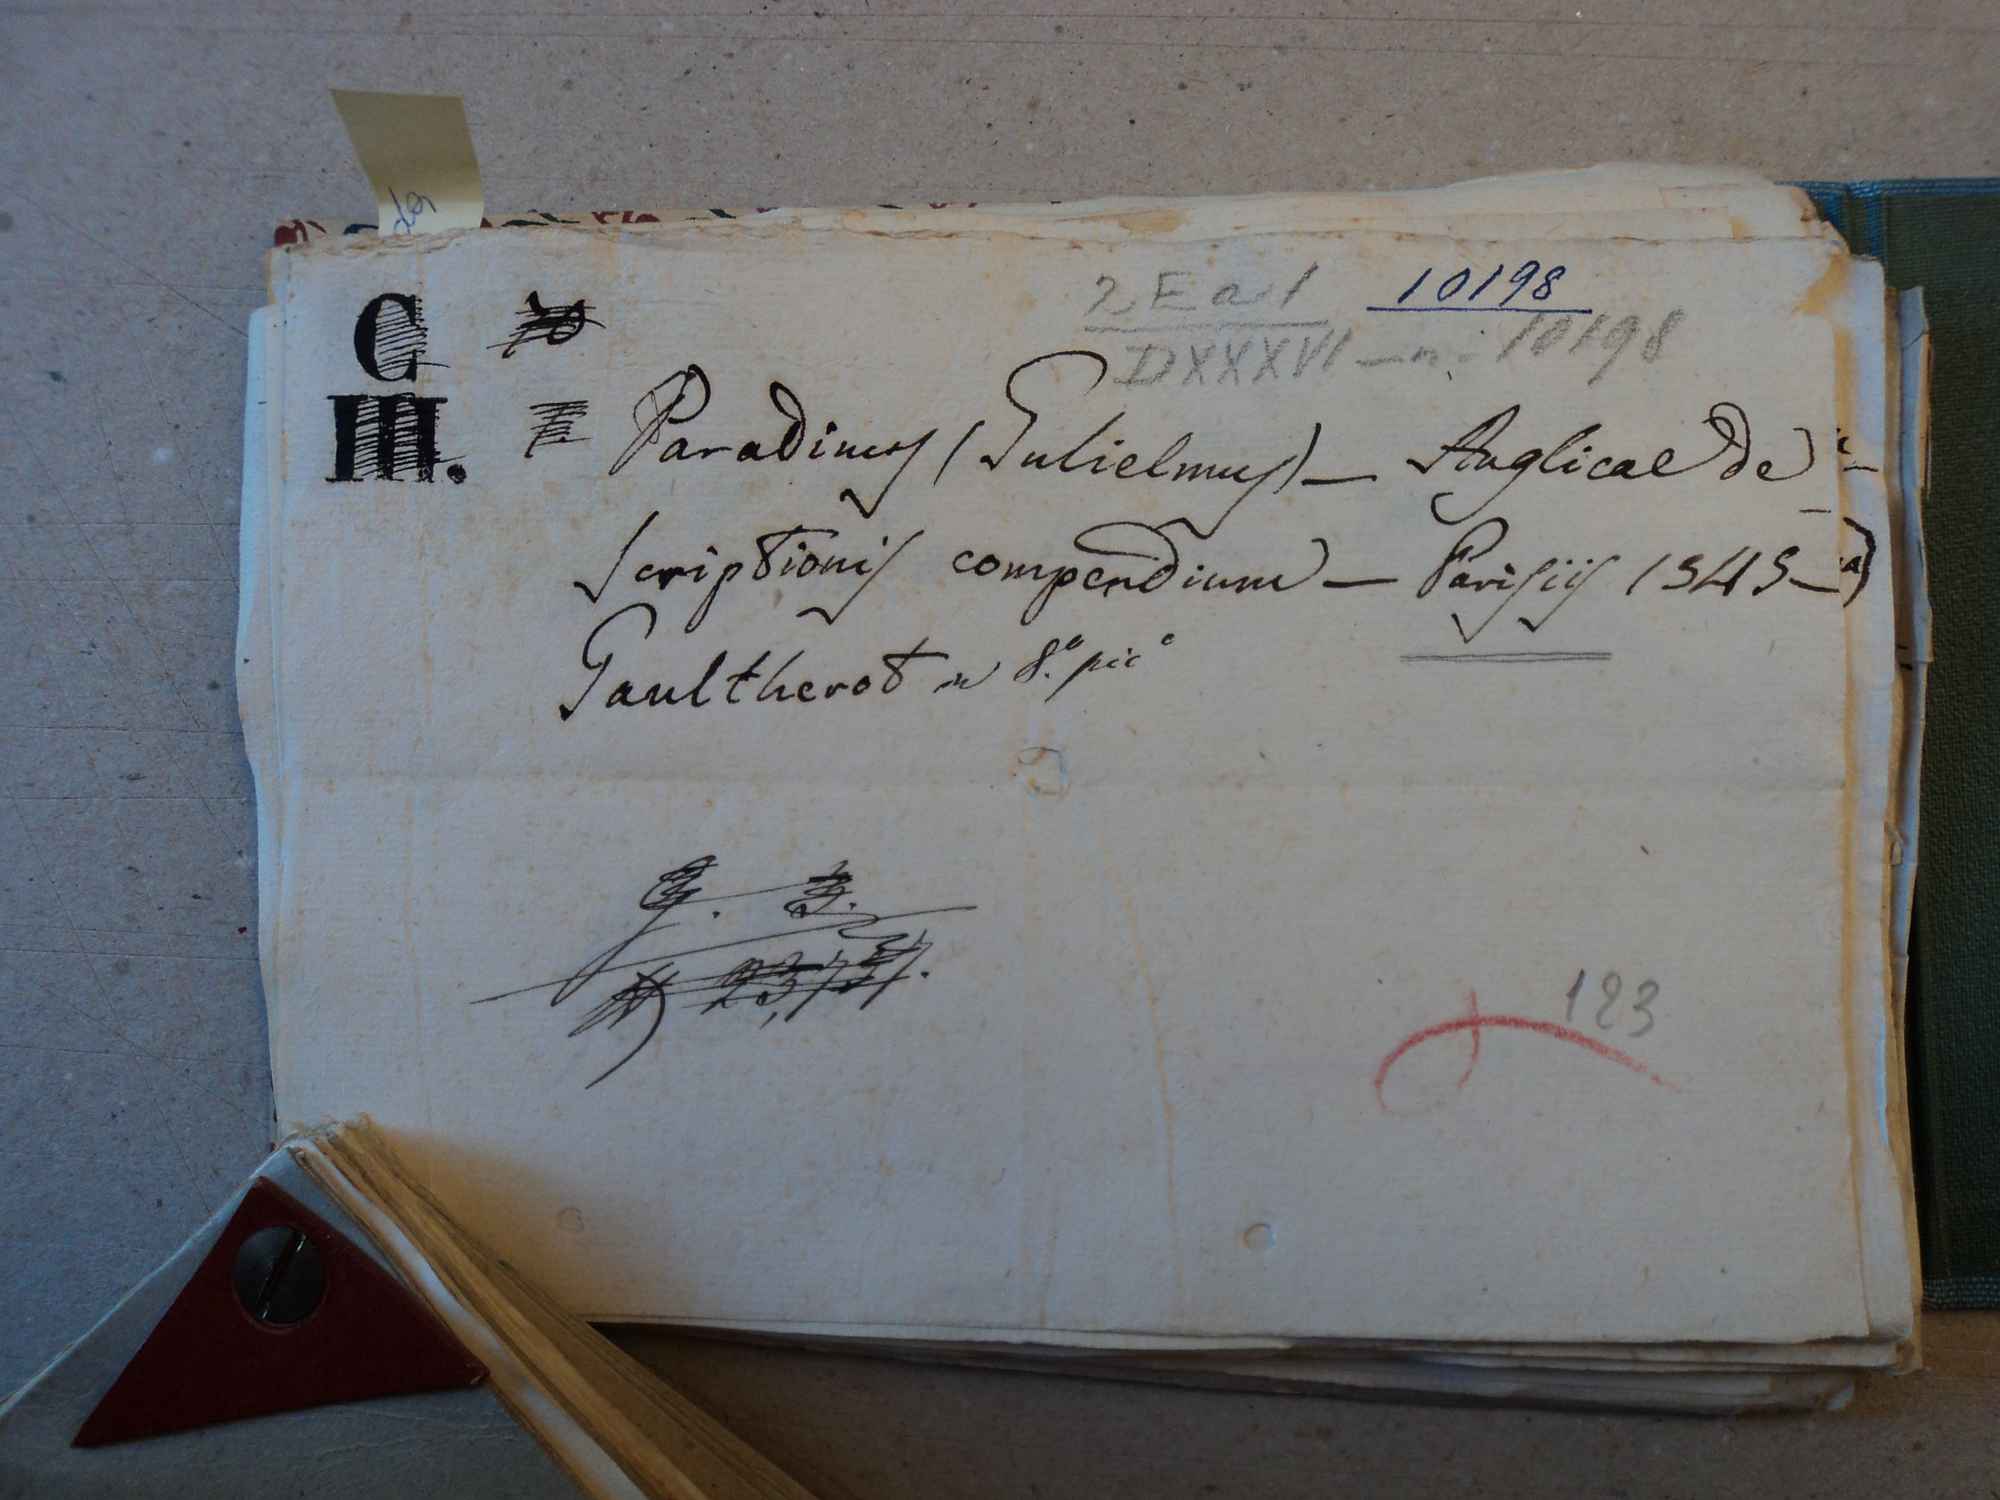 C
III.
2 Ea 1
10198
DXXXVI — n. 10198
Paradinus (Gulielmus) — Anglicae de
scriptionis compendium — Parisiis 1545 —
Gaultherot in 8.° pic°
123